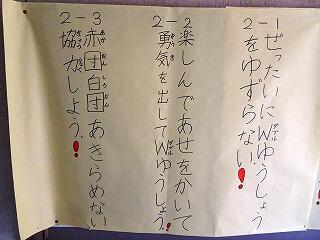 2-1
ぜったいにWゆうしょう
をゆずらない!
2-2
楽しんであせをかいて
勇気を出してWゆうしょう!
2-3
赤団白団あきらめない
協力しよう!